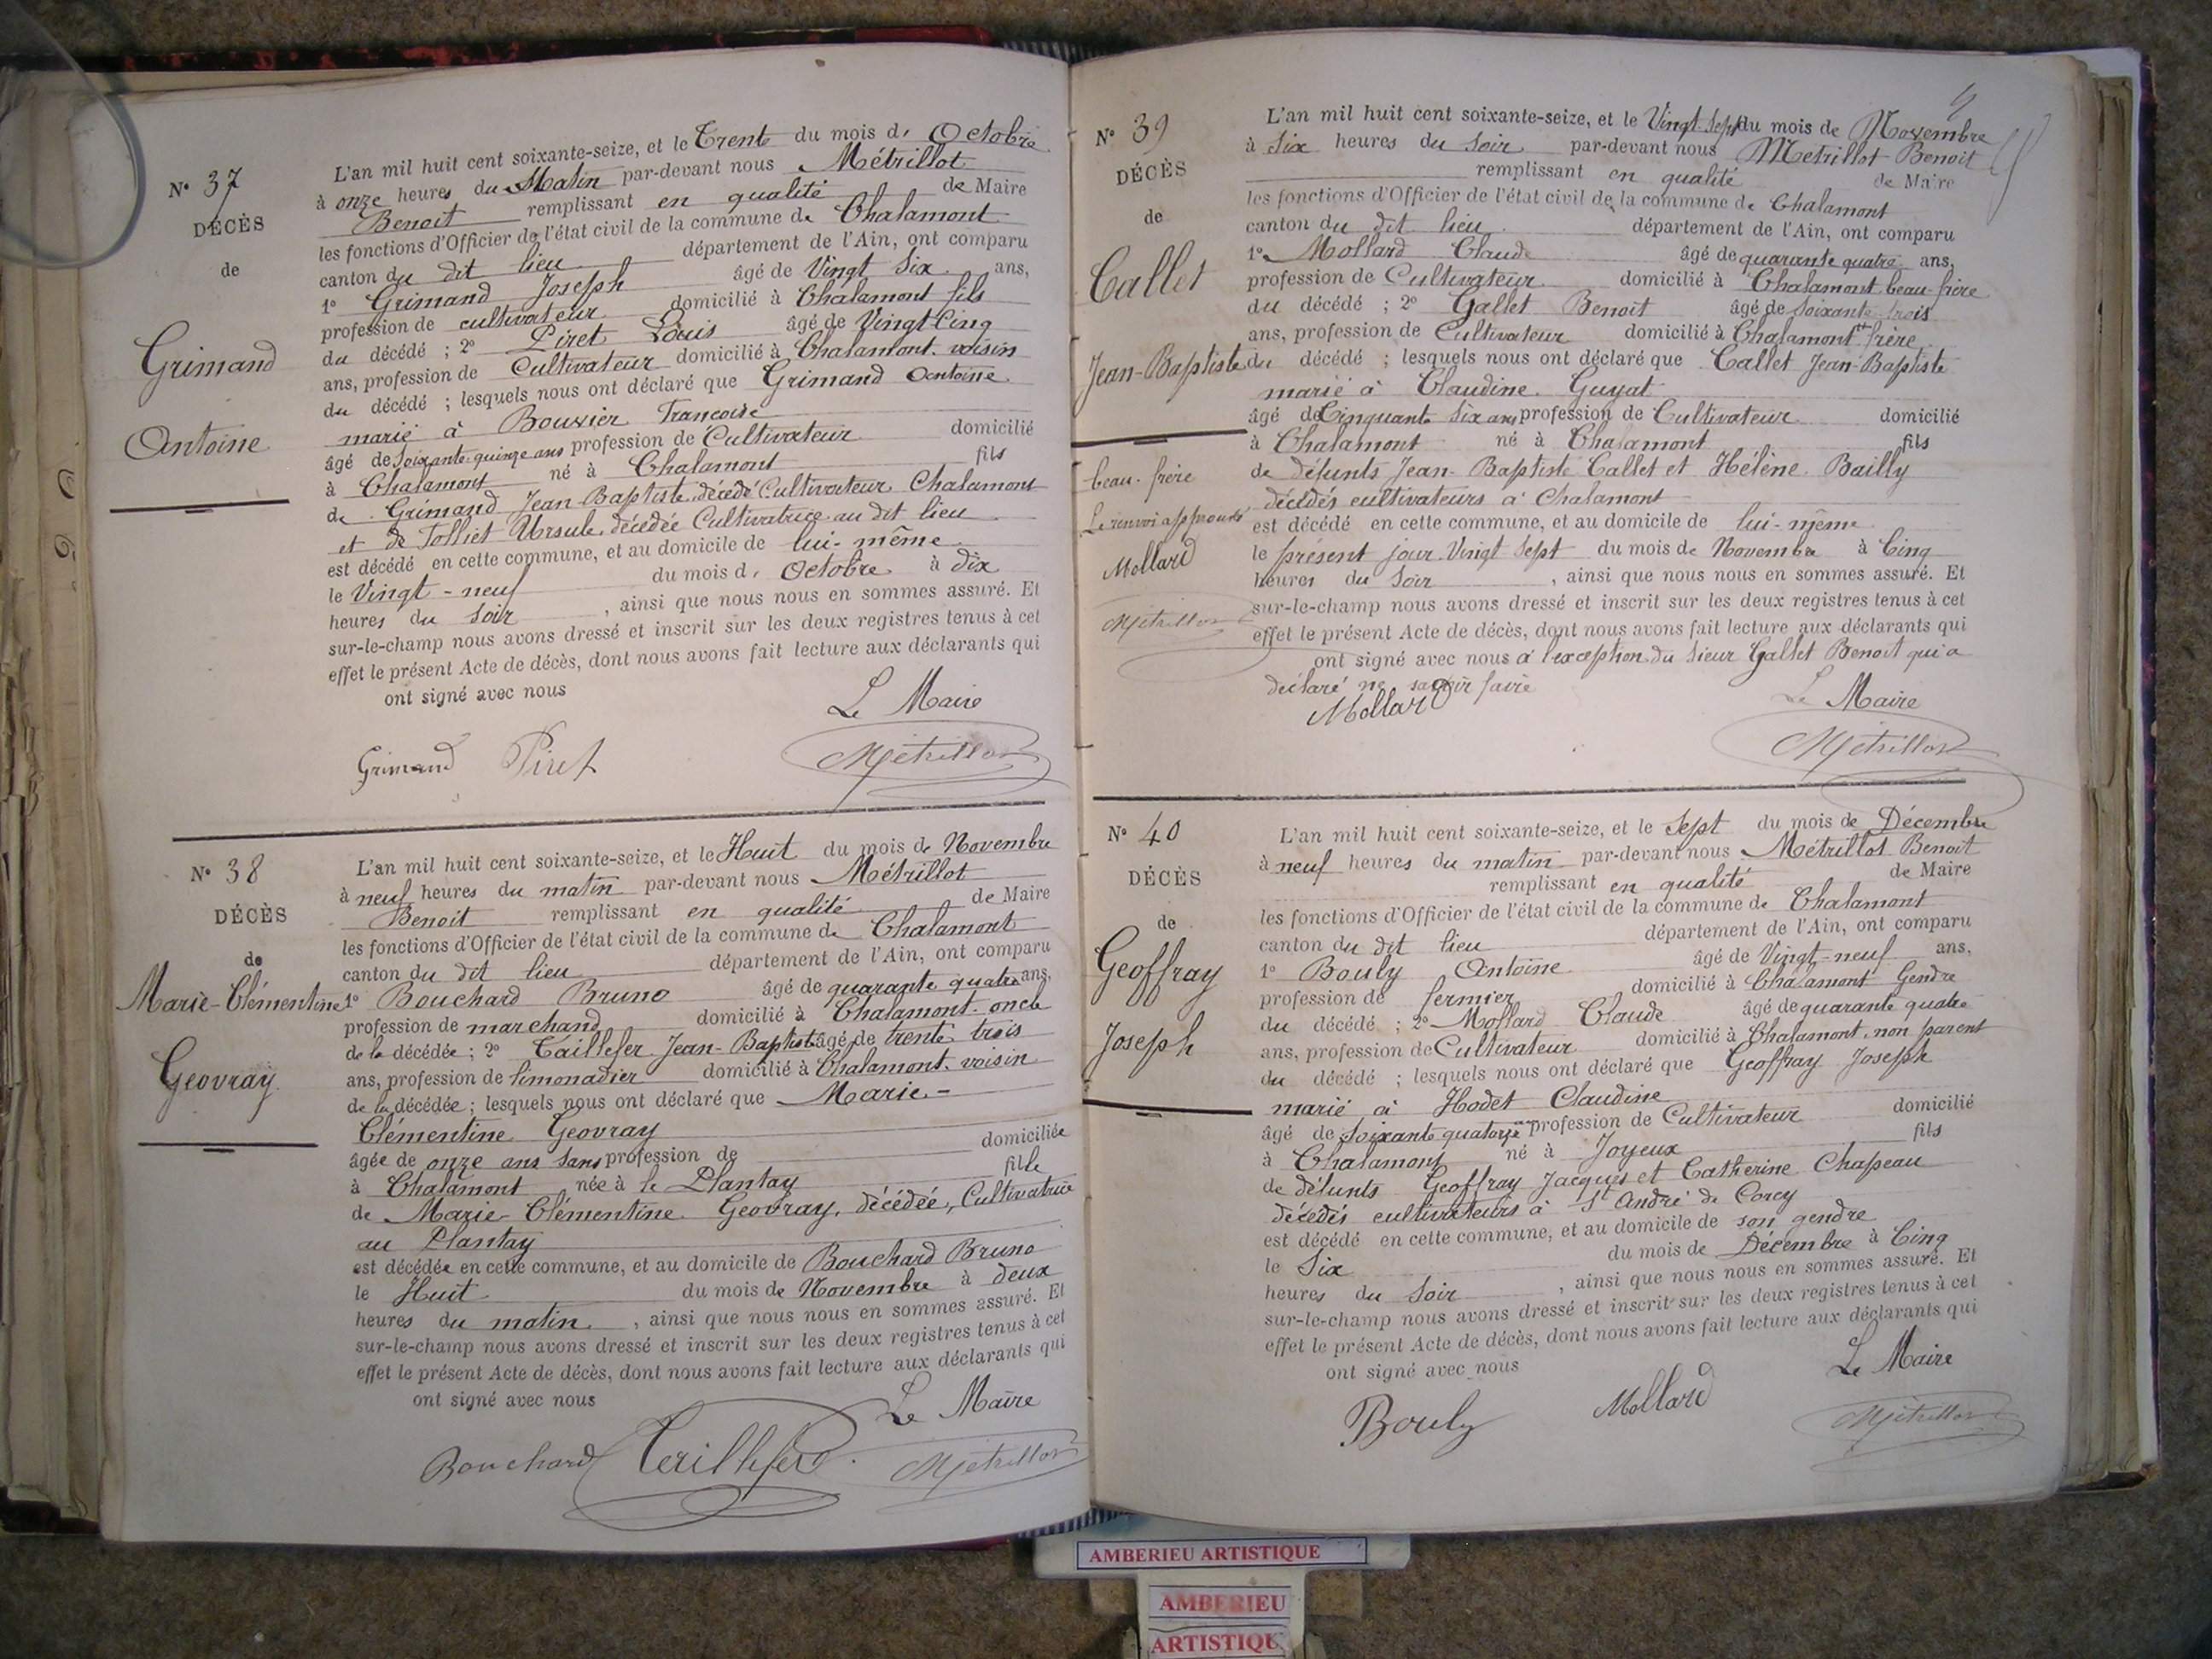 N° 37
DÉCÈS
de
Grimand
Antoine
L'an mil huit cent soixante-seize, et le Trente du mois d' Octobre
à onze heures du Matin par-devant nous Métrillot
Benoit remplissant en qualité de Maire
les fonctions d'Officier de l'état civil de la commune de Chalamont
canton du dit lieu département de l'Ain, ont comparu
1° Grimand Joseph âgé de Vingt Six ans,
profession de cultivateur domicilié à Chalamont fils
du décédé ; 2° Piret Louis âgé de Vingt Cinq
ans, profession de Cultivateur domicilié à Chalamont. voisin
du décédé ; lesquels nous ont déclaré que Grimand Antoine
marié à Bouvier Françoise
âgé de Soixante-quinze ans profession de Cultivateur domicilié
à Chalamont né à Chalamont fils
de Grimand Jean Baptiste, décédé Cultivateur Chalamont
et de Tolliet Ursule, décédée Cultivatrice au dit lieu
est décédé en cette commune, et au domicile de lui-même
le Vingt-neuf du mois d' Octobre à dix
heures du Soir , ainsi que nous nous en sommes assuré. Et
sur-le-champ nous avons dressé et inscrit sur les deux registres tenus à cet
effet le présent Acte de décès, dont nous avons fait lecture aux déclarants qui
ont signé avec nous
Le Maire
Grimand Piret Métrillot
N° 38
DÉCÈS
de
Marie-Clémentine
Geovray
L'an mil huit cent soixante-seize, et le Huit du mois de Novembre
à neuf heures du matin par-devant nous Métrillot
Benoit remplissant en qualité de Maire
les fonctions d'Officier de l'état civil de la commune de Chalamont
canton du dit lieu département de l'Ain, ont comparu
1° Bouchard Bruno âgé de quarante quatre ans,
profession de marchand domicilié à Chalamont. oncle
de la décédée ; 2° Taillefer Jean-Baptiste âgé de trente trois
ans, profession de limonadier domicilié à Chalamont. voisin
de la décédée ; lesquels nous ont déclaré que Marie-
Clémentine Geovray
âgée de onze ans sans profession de domiciliée
à Chalamont née à le Plantay fille
de Marie-Clémentine Geovray, décédée, Cultivatrice
au Plantay
est décédée en cette commune, et au domicile de Bouchard Bruno
le Huit du mois de Novembre à deux
heures du matin , ainsi que nous nous en sommes assuré. Et
sur-le-champ nous avons dressé et inscrit sur les deux registres tenus à cet
effet le présent Acte de décès, dont nous avons fait lecture aux déclarants qui
ont signé avec nous
Le Maire
Bouchard Métrillot
N° 39
DÉCÈS
de
Callet
Jean-Baptiste
beau-frère
Le renvoi approuvé
Mollard
Métrillot
L'an mil huit cent soixante-seize, et le Vingt-Sept du mois de Novembre
à Six heures du Soir par-devant nous Metrillot Benoit
remplissant en qualité de Maire
les fonctions d'Officier de l'état civil de la commune de Chalamont
canton du dit lieu département de l'Ain, ont comparu
1° Mollard Claude âgé de quarante quatre ans,
profession de Cultivateur domicilié à Chalamont beau-frère
du décédé ; 2° Gallet Benoit âgé de Soixante-trois
ans, profession de Cultivateur domicilié à Chalamont frère
du décédé ; lesquels nous ont déclaré que Callet Jean-Baptiste
marié à Claudine Guyat
âgé de Cinquante Six ans profession de Cultivateur domicilié
à Chalamont né à Chalamont fils
de défunts Jean-Baptiste Callet et Hélène Bailly
décédés cultivateurs à Chalamont
est décédé en cette commune, et au domicile de lui-même
le présent jour Vingt Sept du mois de Novembre à Cinq
heures du Soir , ainsi que nous nous en sommes assuré. Et
sur-le-champ nous avons dressé et inscrit sur les deux registres tenus à cet
effet le présent Acte de décès, dont nous avons fait lecture aux déclarants qui
ont signé avec nous à l'exception du Sieur Gallet Benoit qui a
déclaré ne savoir faire
Mollard
Le Maire
Métrillot
N° 40
DÉCÈS
de
Geoffray
Joseph
L'an mil huit cent soixante-seize, et le Sept du mois de Décembre
à neuf heures du matin par-devant nous Métrillot Benoit
remplissant en qualité de Maire
les fonctions d'Officier de l'état civil de la commune de Chalamont
canton du dit lieu département de l'Ain, ont comparu
1° Bouly Antoine âgé de Vingt-neuf ans,
profession de fermier domicilié à Chalamont Gendre
du décédé ; 2° Mollard Claude âgé de quarante quatre
ans, profession de Cultivateur domicilié à Chalamont, non parent
du décédé ; lesquels nous ont déclaré que Geoffray Joseph
marié à Hodet Claudine
âgé de Soixante quatorze ans profession de Cultivateur domicilié
à Chalamont né à Joyeux fils
de défunts Geoffray Jacques et Catherine Chapeau
décédés cultivateurs à St André de Corcy
est décédé en cette commune, et au domicile de son gendre
le Six du mois de Décembre à Cinq
heures du Soir , ainsi que nous nous en sommes assuré. Et
sur-le-champ nous avons dressé et inscrit sur les deux registres tenus à cet
effet le présent Acte de décès, dont nous avons fait lecture aux déclarants qui
ont signé avec nous
Le Maire
Bouly Mollard Métrillot
AMBERIEU ARTISTIQUE
AMBERIEU
ARTISTIQU